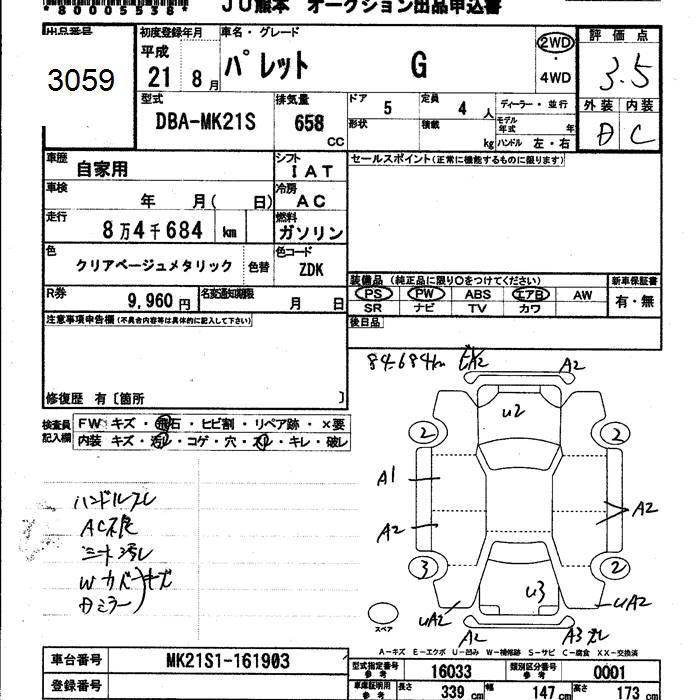 *80005538*
JU熊本 オークション出品申込書
出品番号 初度登録年月 車名・グレード 評価点
3059 平成 21 8月 パレット G 2WD 4WD 3.5
外装 内装
型式 排気量 ドア 5 定員 4人 ディーラー・並行
DBA-MK21S 658 CC 形状 積載 kg モデル年式 年 ハンドル 左・右
D C
車歴 自家用 シフト IAT セールスポイント(正常に機能するものに限ります)
車検 年 月( 日) 冷房 AC
走行 8万4千684 km 燃料 ガソリン
色 クリアベージュメタリック 色替 色コード ZDK
装備品 (純正品に限り○をつけてください) 新車保証書
PS PW ABS エアB AW 有・無
SR ナビ TV カワ
R券 9,960円 名変通知期限 月 日
後日品
注意事項申告欄(不具合内容等は具体的に記入して下さい)
修復歴 有〔箇所 〕
84.684km A2 A2
検査員記入欄 FW キズ・飛石・ヒビ割・リペア跡・×要
内装 キズ・汚レ・コゲ・穴・スレ・キレ・破レ
U2
2 2
A1
A2 A2
3 2
U3
UA2 UA2
A2 A3
スペア
ハンドルスレ
AC不良
シート汚レ
Wカバーキズ
Dミラー
A-キズ E-エクボ U-凹み W-補修跡 S-サビ C-腐食 XX-交換済
車台番号 MK21S1-161903
型式指定番号 参考 16033 類別区分番号 参考 0001
登録番号
車庫証明用 参考 長さ 339cm 幅 147cm 高さ 173cm